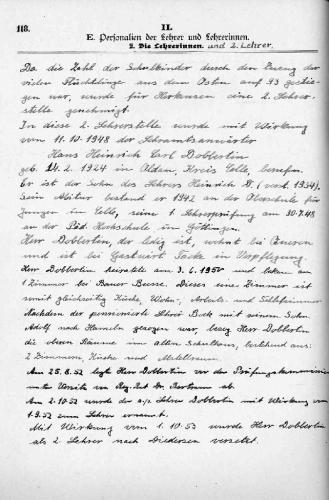 118.
II.
E. Personalien der Lehrer und Lehrerinnen.
2. Die Lehrerinnen. und 2. Lehrer.
Da die Zahl der Schulkinder durch den Zuzug der
vielen Flüchtlinge aus dem Osten auf 93 gestie-
gen war, wurde für Herkensen eine 2. Lehrer-
stelle genehmigt.
In diese 2. Lehrerstelle wurde mit Wirkung
vom 11.10.1948 der Schulamtsanwärter
Hans Heinrich Carl Dobbertin
geb. 14. 2. 1924 in Oldau, Kreis Celle, berufen.
Er ist der Sohn des Lehrers Heinrich D. (verst. 1934).
Sein Abitur bestand er 1942 an der Oberschule für
Jungen in Celle, seine 1. Lehrerprüfung am 30.7.48
an der Päd. Hochschule in Göttingen.
Herr Dobbertin, der ledig ist, wohnt bei
und ist bei Gastwirt Tacke in Verpflegung.
Herr Dobbertin heiratete am 3. 6. 1950 und bekam an
1 Zimmer bei Bauer Beesse. Dieses eine Zimmer ist
somit gleichzeitig Küche, Wohn-, Arbeits- und Schlafzimmer
Nachdem der pensionierte Lehrer Bock mit seinem Sohn
Adolf nach Hameln gezogen war, bezog Herr Dobbertin
die oberen Räume im alten Schulhaus, bestehend aus:
2 Zimmern, Küche und Abstellraum.
Am 25.8.52 legte Herr Dobbertin vor der Prüfungskommission
unter Vorsitz von Reg. Rat Dr. ab.
Am 2.10.52 wurde der a.pl. Lehrer Dobbertin mit Wirkung vom
1.9.52 zum Lehrer ernannt.
Mit Wirkung vom 1. 10. 53 wurde Herr Dobbertin
als 2. Lehrer nach Diedersen versetzt.